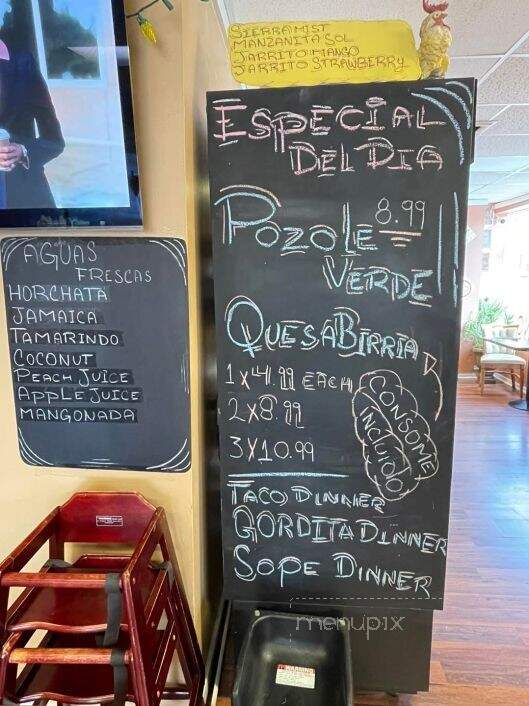 SIERRA MIST
MANZANITA SOL
JARRITO MANGO
JARRITO STRAWBERRY
ESPECIAL
DEL DIA
POZOLE 8.99
VERDE
QUESABIRRIA
1 x 4.99 EACH
2 x 8.99
3 x 10.99
CONSOME
INCLUIDO
TACO DINNER
GORDITA DINNER
SOPE DINNER
AGUAS
FRESCAS
HORCHATA
JAMAICA
TAMARINDO
COCONUT
PEACH JUICE
APPLE JUICE
MANGONADA
WARNING
menupix